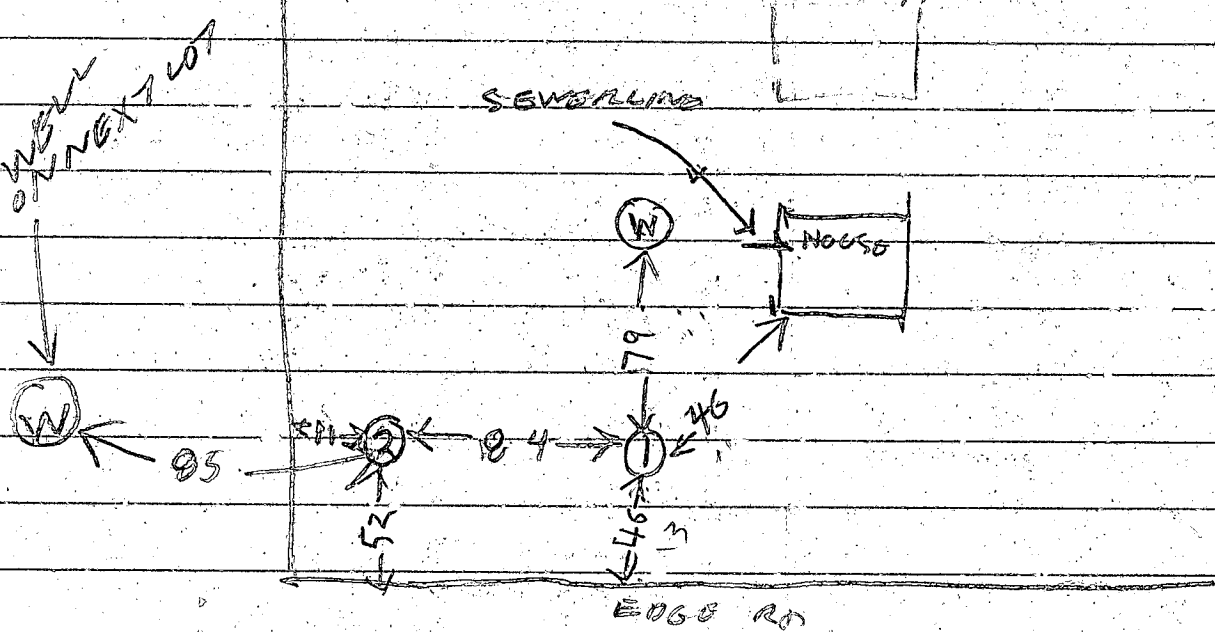 WELL
ON NEXT LOT
SEWERLINE
W
HOUSE
79
46
W
11
2
84
1
85
52
46
13
EDGE RD